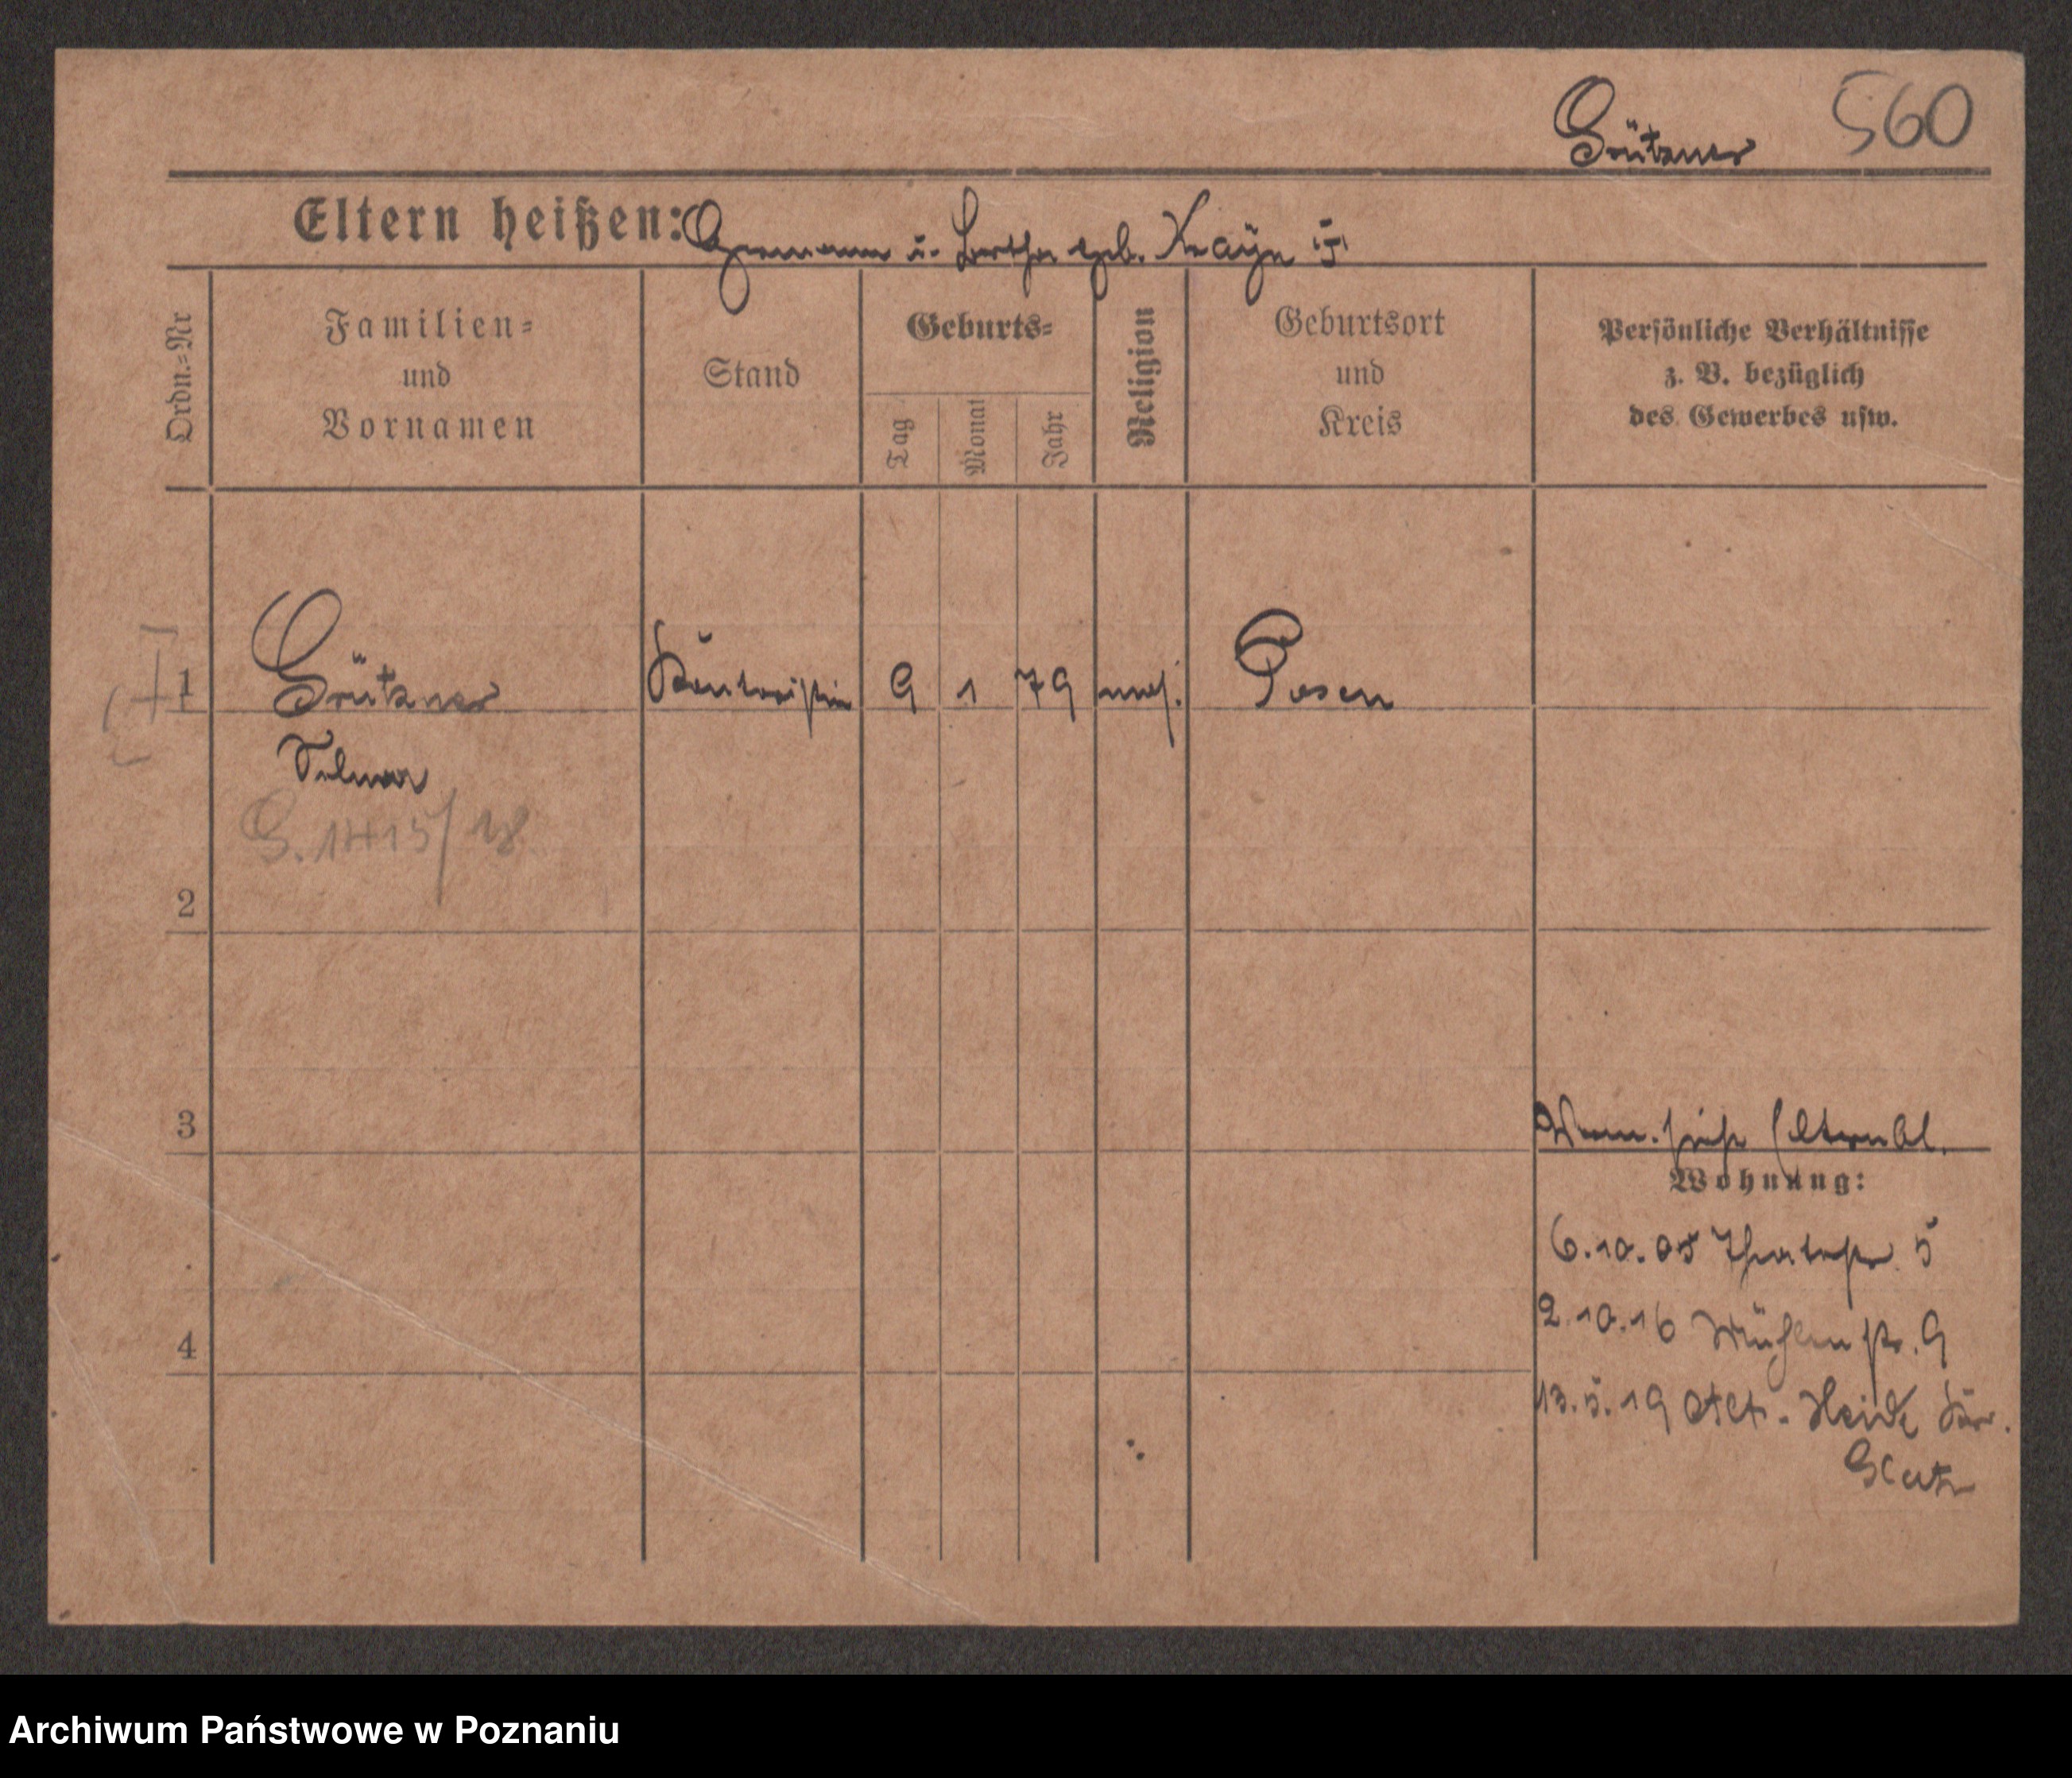 Grützner 560
Eltern heißen: Hermann u. Bertha geb. Krayn
Ordn.=Nr
Familien=
und
Vornamen
Stand
Geburts=
Tag
Monat
Jahr
Religion
Geburtsort
und
Kreis
Persönliche Verhältnisse
z. B. bezüglich
des Gewerbes usw.
1 Grützner Kontoristin 9 1 79 mos. Posen
Selma
G. 1415/18
2
3
siehe Elternbl.
Wohnung:
6.10.05 Theaterstr 5
2.10.16 Mühlenstr. 9
4
13.5.19 Alt-Heide
Glatz
Archiwum Państwowe w Poznaniu